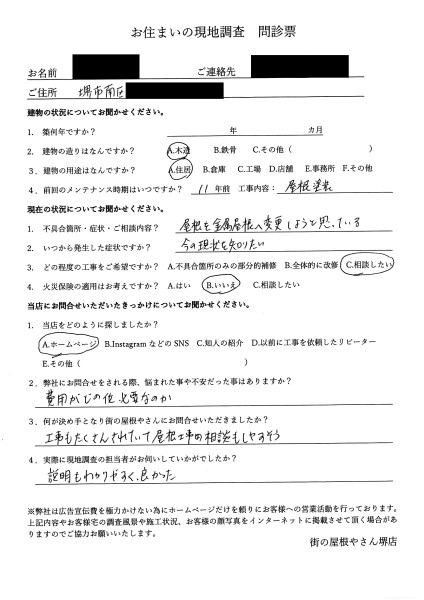 お住まいの現地調査 問診票
お名前 ご連絡先
ご住所 堺市南区
建物の状況についてお聞かせください。
1. 築何年ですか? 年 カ月
2. 建物の造りはなんですか? A.木造 B.鉄骨 C.その他( )
3. 建物の用途はなんですか? A.住居 B.倉庫 C.工場 D.店舗 E.事務所 F.その他
4. 前回のメンテナンス時期はいつですか? 11 年前 工事内容: 屋根塗装
現在の状況についてお聞かせください。
1. 不具合箇所・症状・ご相談内容? 屋根を金属屋根へ変更しようと思っている
2. いつから発生した症状ですか? 今の現状を知りたい
3. どの程度の工事をご希望ですか? A.不具合箇所のみの部分的補修 B.全体的に改修 C.相談したい
4. 火災保険の適用はお考えですか? A.はい B.いいえ C.相談したい
当店にお問合せいただいたきっかけについてお聞かせください。
1. 当店をどのように探しましたか?
A.ホームページ B.Instagram などの SNS C.知人の紹介 D.以前に工事を依頼したリピーター
E.その他( )
2. 弊社にお問合せをされる際、悩まれた事や不安だった事はありますか?
費用がどの位必要なのか
3. 何が決め手となり街の屋根やさんにお問合せいただきましたか?
工事もたくさんされていて屋根工事の相談もしやすそう
4. 実際に現地調査の担当者がお伺いしていかがでしたか?
説明もわかりやすく、良かった
※弊社は広告宣伝費を極力かけない為にホームページだけを頼りにお客様への営業活動を行っております。
上記内容やお客様宅の調査風景や施工状況、お客様の顔写真をインターネットに掲載させて頂く場合があ
りますのでご協力お願いいたします。
街の屋根やさん堺店